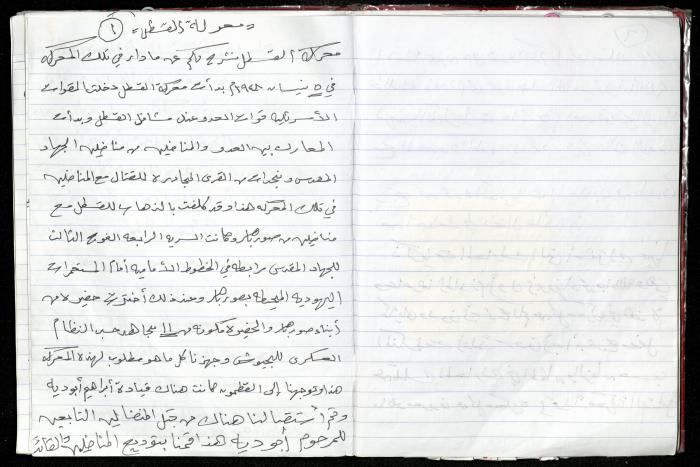 معركة القسطل (١)
معركة القسطل نشرح لكم عن ما دار في تلك المعركة
في ٥ نيسان ١٩٤٨م بدأت معركة القسطل دخلت القوات
قوات العدو عند مشارف القسطل وبدأت
المعارك بين العدو والمناضلين من مناضلين الجهاد
المقدس ونجدات من القرى المجاورة للقتال مع المناضلين
في تلك المعركة هذا وقد كلفت بالذهاب للقسطل مع
مناضلين من صور باهر وكانت السرية الرابعة الفوج الثالث
للجهاد المقدس مرابطة في الخطوط الأمامية أمام المستعمرات
اليهودية المحيطة بصور باهر وعند ذلك أخترت حضيرة من
أبناء صور باهر والحضيرة مكونه من ١١ مجاهد حسب النظام
العسكري للجيوش وجهزنا كل ما هو مطلوب لهذه المعركة
هذا وتوجهنا إلى القطمون كانت هناك قيادة أبراهيم أبو دية
وتم أستقبالنا هناك من قبل المناضلين التابعين
للمرحوم أبو دية هذا قمنا بتوديع المناضلين والقائد